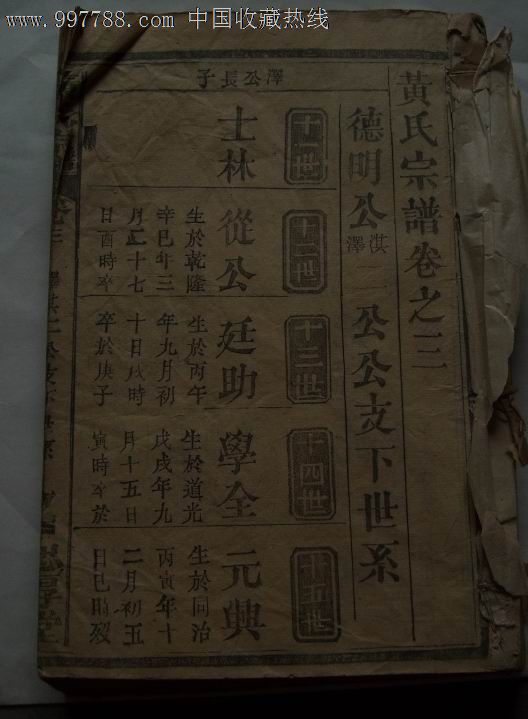 www.997788.com 中国收藏热线
黃氏宗譜卷之三
德明公淇澤二公公支下世系
十一世
十二世
十三世
十四世
十五世
澤公長子
士林
從公
生於乾隆
辛巳年三
月二十七
日酉時卒
廷助
生於丙午
年九月初
十日戌時
卒於庚子
學全
生於道光
戊戌年九
月十五日
寅時卒於
元興
生於同治
丙寅年十
二月初五
日巳時歿